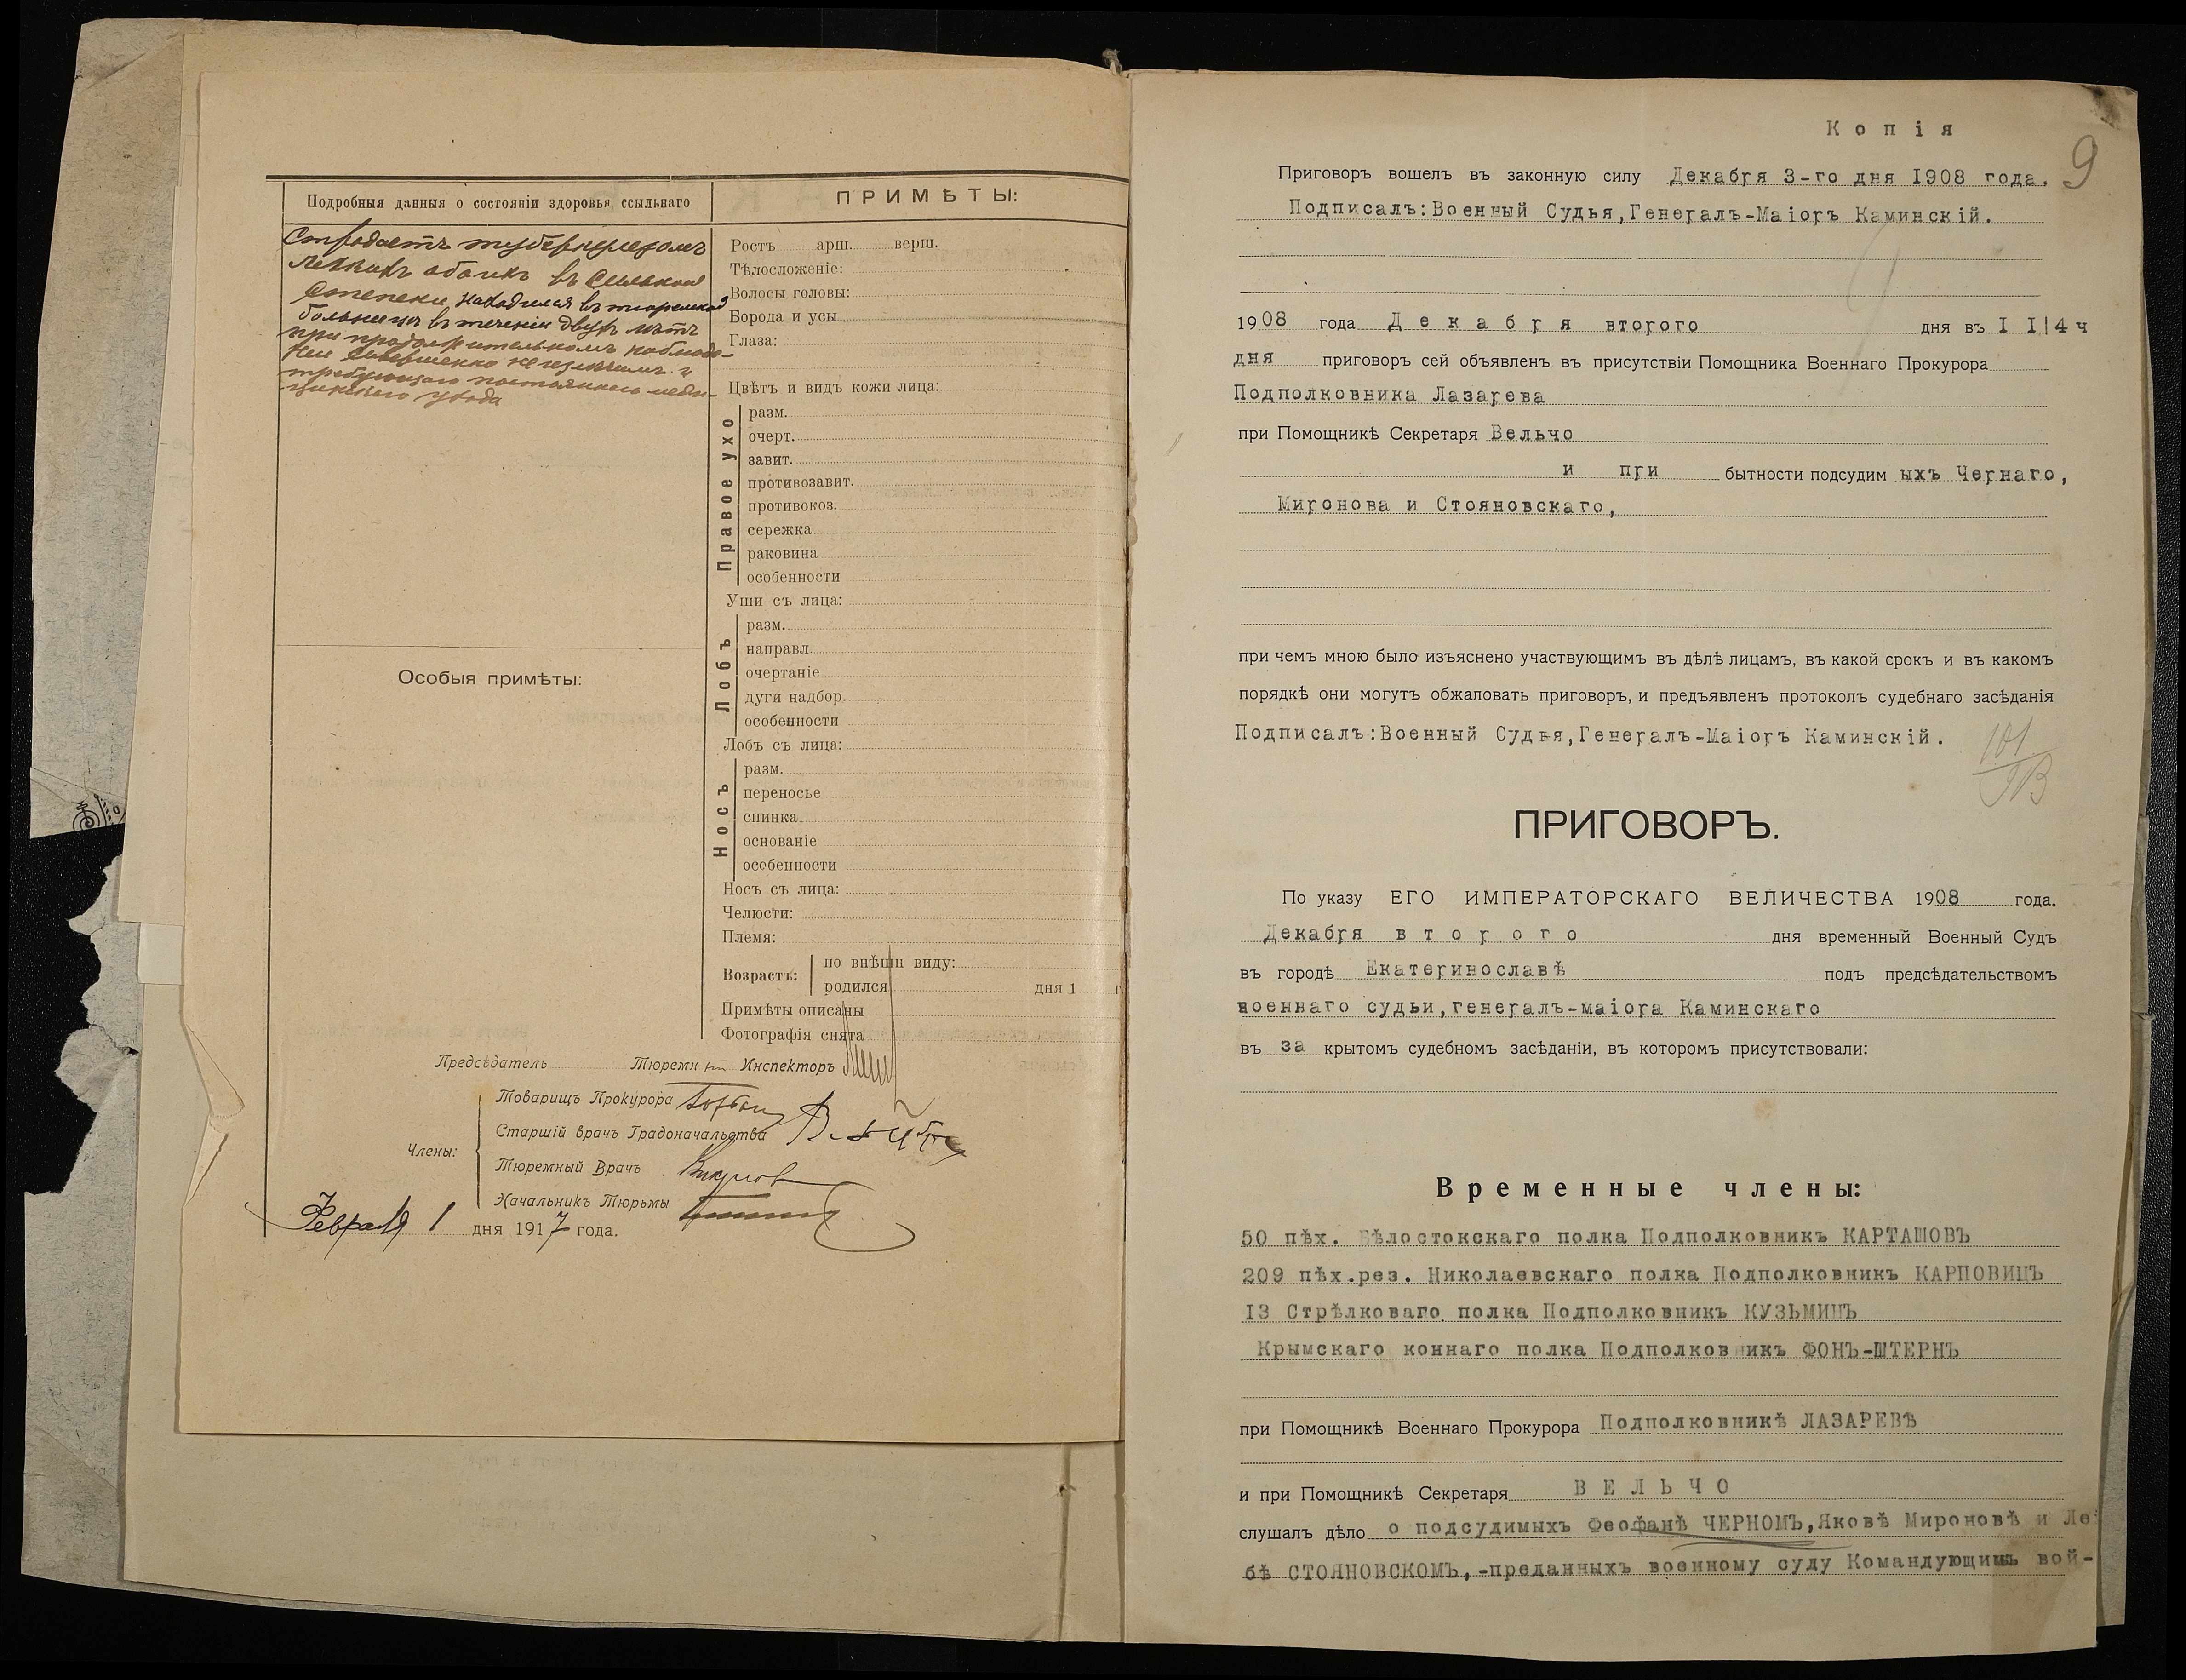 Подробныя данныя о состояніи здоровья ссыльнаго
Страдаетъ туберкулезомъ
легкихъ обоихъ въ сильной
степени, находился въ тюремной
больницѣ въ теченіи двухъ лѣтъ
при продолжительномъ наблюде-
ніи совершенно неизлѣчимъ и
требующаго постояннаго меди-
цинскаго ухода
Особыя примѣты:
ПРИМѢТЫ:
Ростъ арш. верш.
Тѣлосложеніе:
Волосы головы:
Борода и усы
Глаза:
Цвѣтъ и видъ кожи лица:
Правое ухо
разм.
очерт.
завит.
противозавит.
противокоз.
сережка
раковина
особенности
Уши съ лица:
Лобъ
разм.
направл.
очертаніе
дуги надбор.
особенности
Лобъ съ лица:
Носъ
разм.
переносье
спинка
основаніе
особенности
Носъ съ лица:
Челюсти:
Племя:
Возрастъ:
по внѣшн виду:
родился дня 1 г.
Примѣты описаны
Фотографія снята
Предсѣдатель Тюремн Инспекторъ
Члены:
Товарищъ Прокурора
Старшій врачъ Градоначальства
Тюремный Врачъ
Начальникъ Тюрьмы
Февраля 1 дня 1917 года.
Копія
9
Приговоръ вошелъ въ законную силу Декабря 3-го дня 1908 года.
Подписалъ:Военный Судья,Генералъ-Маіоръ Каминскій.
1908 года Декабря второго дня въ I I|4 ч
дня приговоръ сей объявленъ въ присутствіи Помощника Военнаго Прокурора
Подполковника Лазарева
при Помощникѣ Секретаря Вельчо
и при бытности подсудим ыхъ Чернаго,
Миронова и Стояновскаго,
при чемъ мною было изъяснено участвующимъ въ дѣлѣ лицамъ, въ какой срокъ и въ какомъ
порядкѣ они могутъ обжаловать приговоръ, и предъявленъ протоколъ судебнаго засѣданія
Подписалъ:Военный Судья,Генералъ-Маіоръ Каминскій.
ПРИГОВОРЪ.
По указу ЕГО ИМПЕРАТОРСКАГО ВЕЛИЧЕСТВА 1908 года.
Декабря второго дня временный Военный Судъ
въ городѣ Екатеринославѣ подъ предсѣдательствомъ
военнаго судьи,генералъ-маіора Каминскаго
въ за крытомъ судебномъ засѣданіи, въ которомъ присутствовали:
Временные члены:
50 пѣх. Бѣлостокскаго полка Подполковникъ КАРТАШОВЪ
209 пѣх.рез. Николаевскаго полка Подполковникъ КАРПОВИЦЪ
I3 Стрѣлковаго полка Подполковникъ КУЗЬМИНЪ
Крымскаго коннаго полка Подполковникъ ФОНЪ-ШТЕРНЪ
при Помощникѣ Военнаго Прокурора Подполковникѣ ЛАЗАРЕВѢ
и при Помощникѣ Секретаря ВЕЛЬЧО
слушалъ дѣло о подсудимыхъ Феофанѣ ЧЕРНОМЪ,Яковѣ Мироновѣ и Лей
бѣ СТОЯНОВСКОМЪ,-преданныхъ военному суду Командующимъ вой-